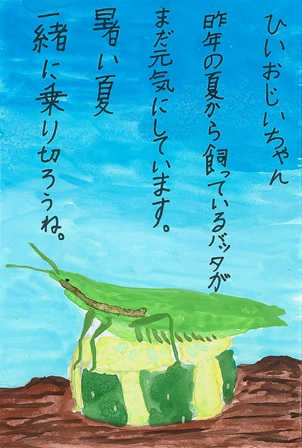 ひいおじいちゃん
昨年の夏から飼っているバッタが
まだ元気にしています。
暑い夏
一緒に乗り切ろうね。